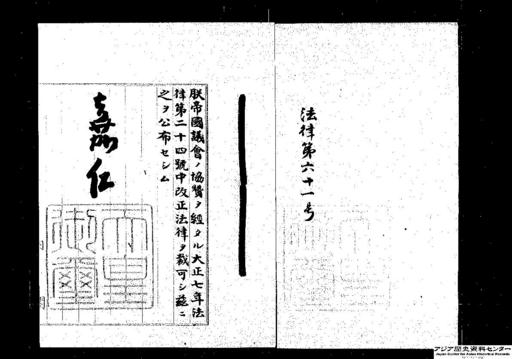 法律第六十一号
朕帝國議會ノ協贊ヲ經タル大正七年法
律第二十四號中改正法律ヲ裁可シ茲ニ
之ヲ公布セシム
嘉仁
天皇
御璽
アジア歴史資料センター
Japan Center for Asian Historical Records